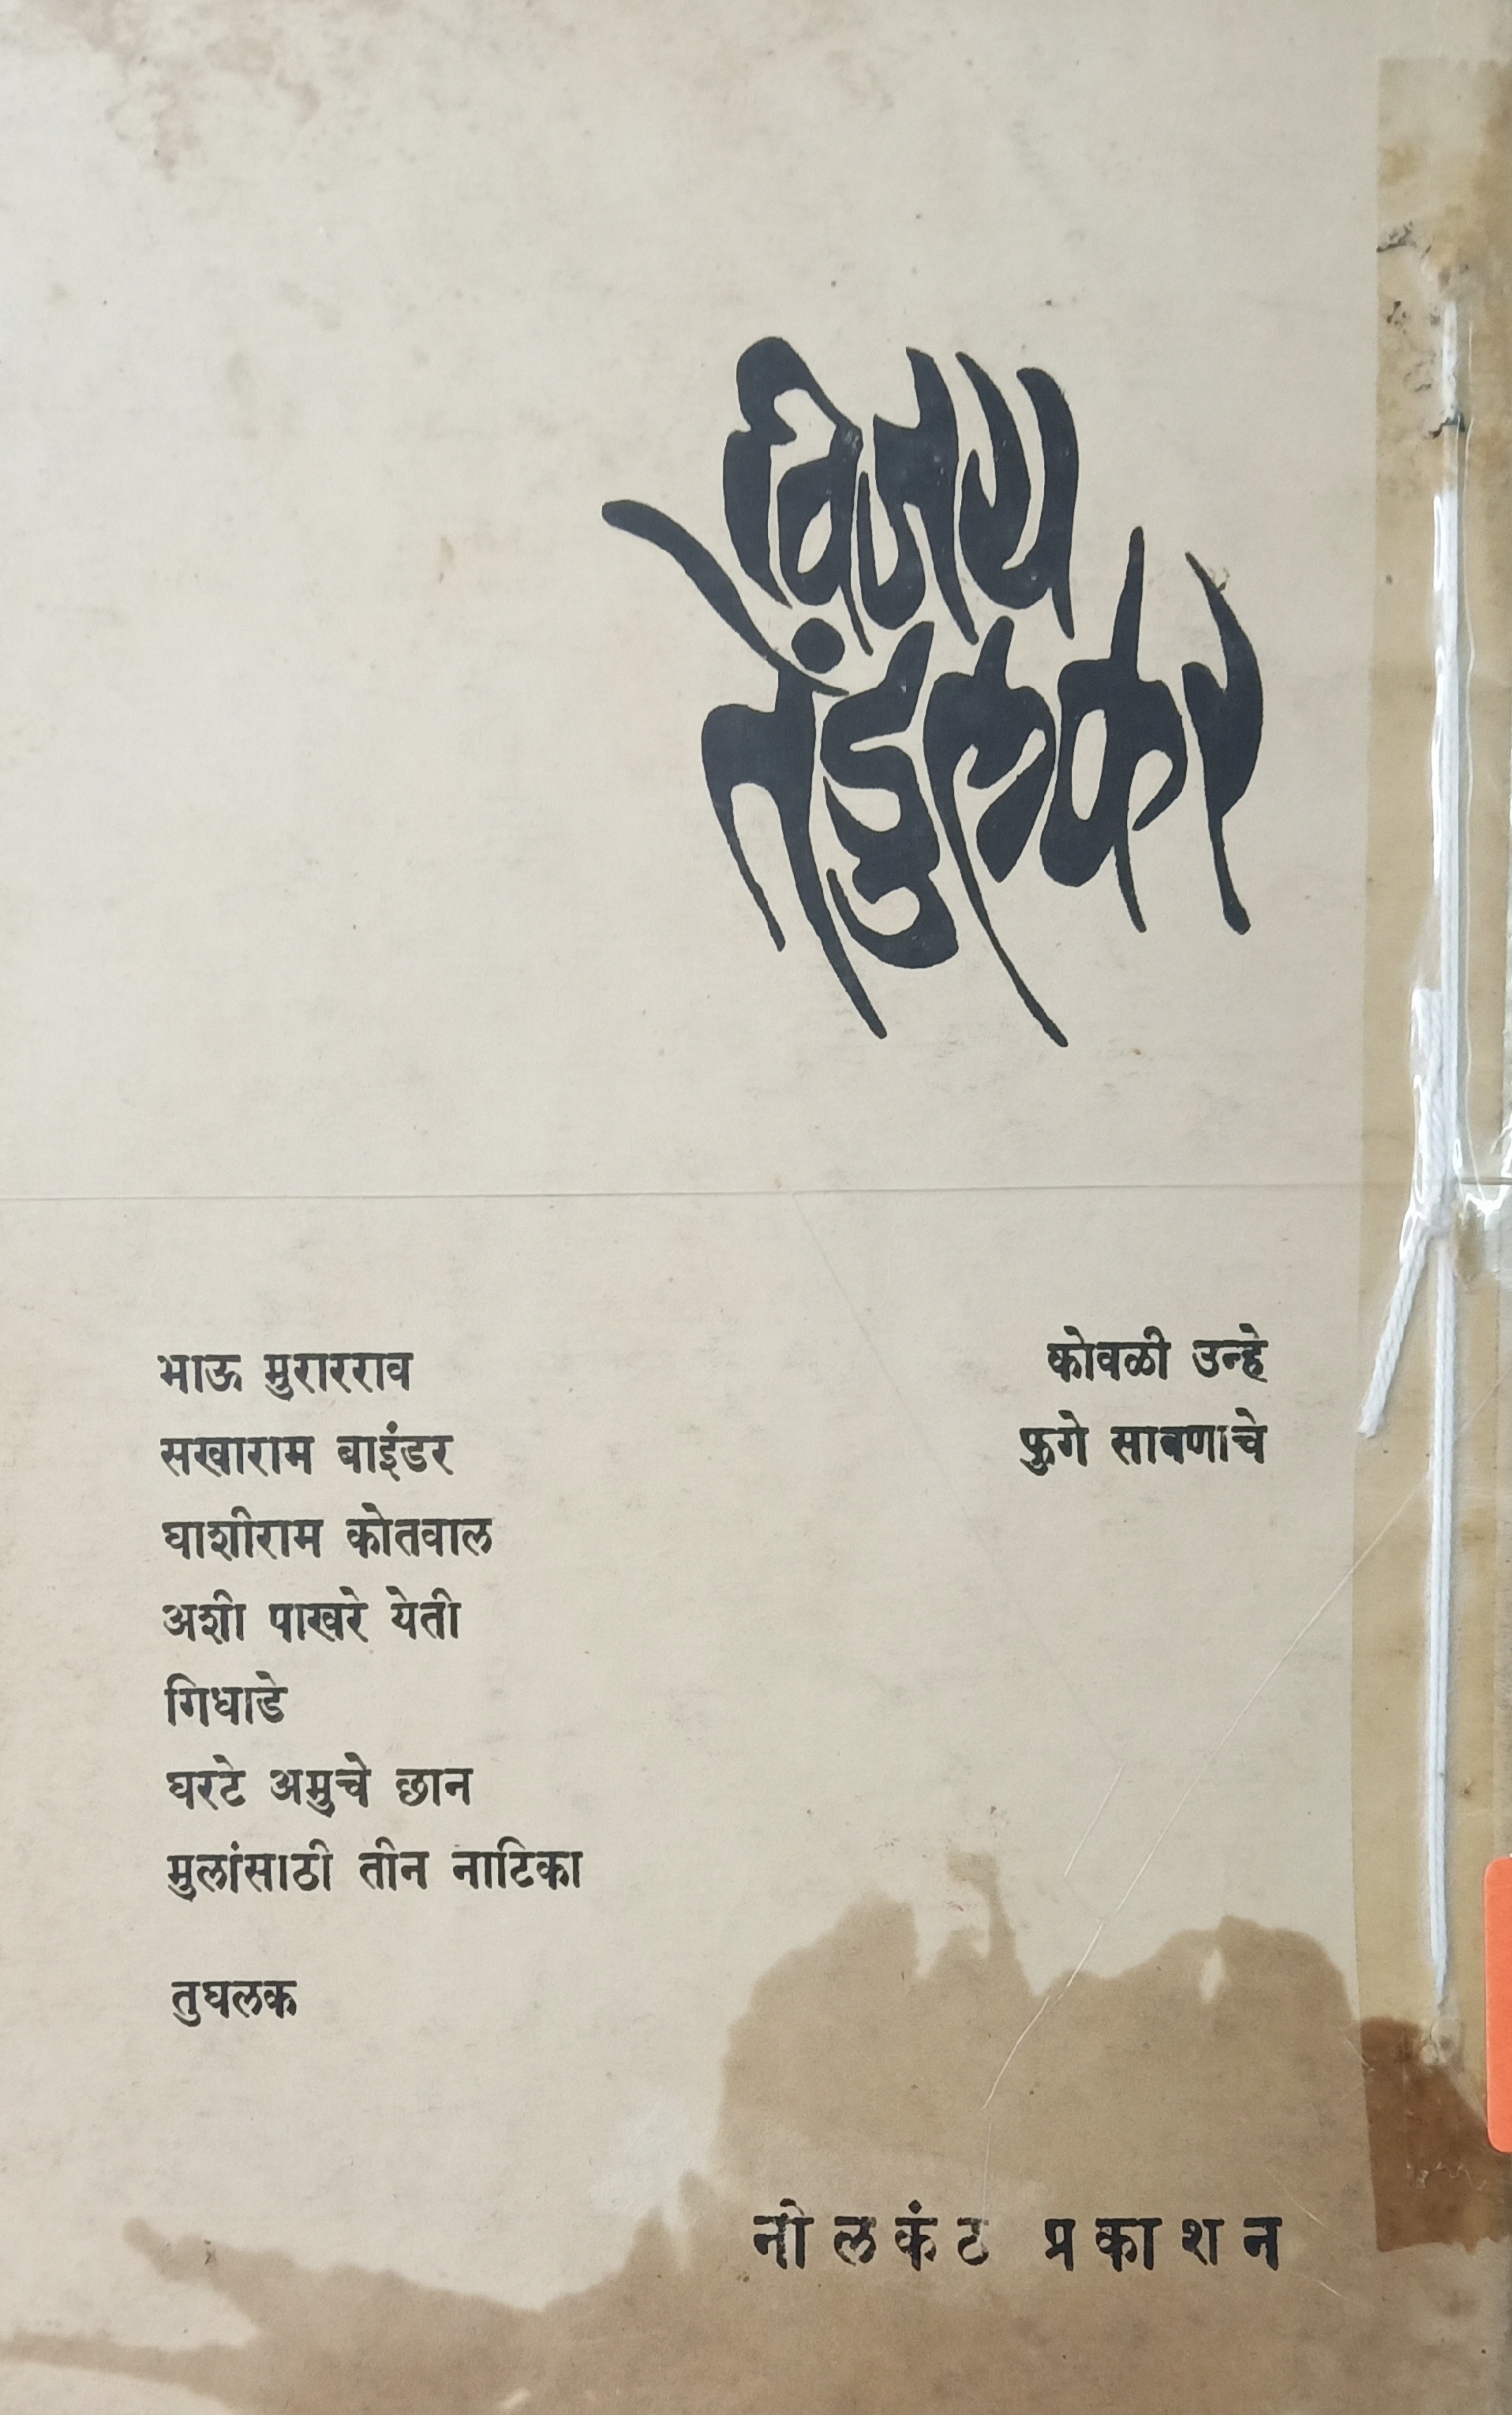 विजय
तेंडुलकर
भाऊ मुरारराव
सखाराम बाइंडर
घाशीराम कोतवाल
अशी पाखरे येती
गिधाडे
घरटे अमुचे छान
मुलांसाठी तीन नाटिका
तुघलक
कोवळी उन्हे
फुगे साबणाचे
नीलकंठ प्रकाशन